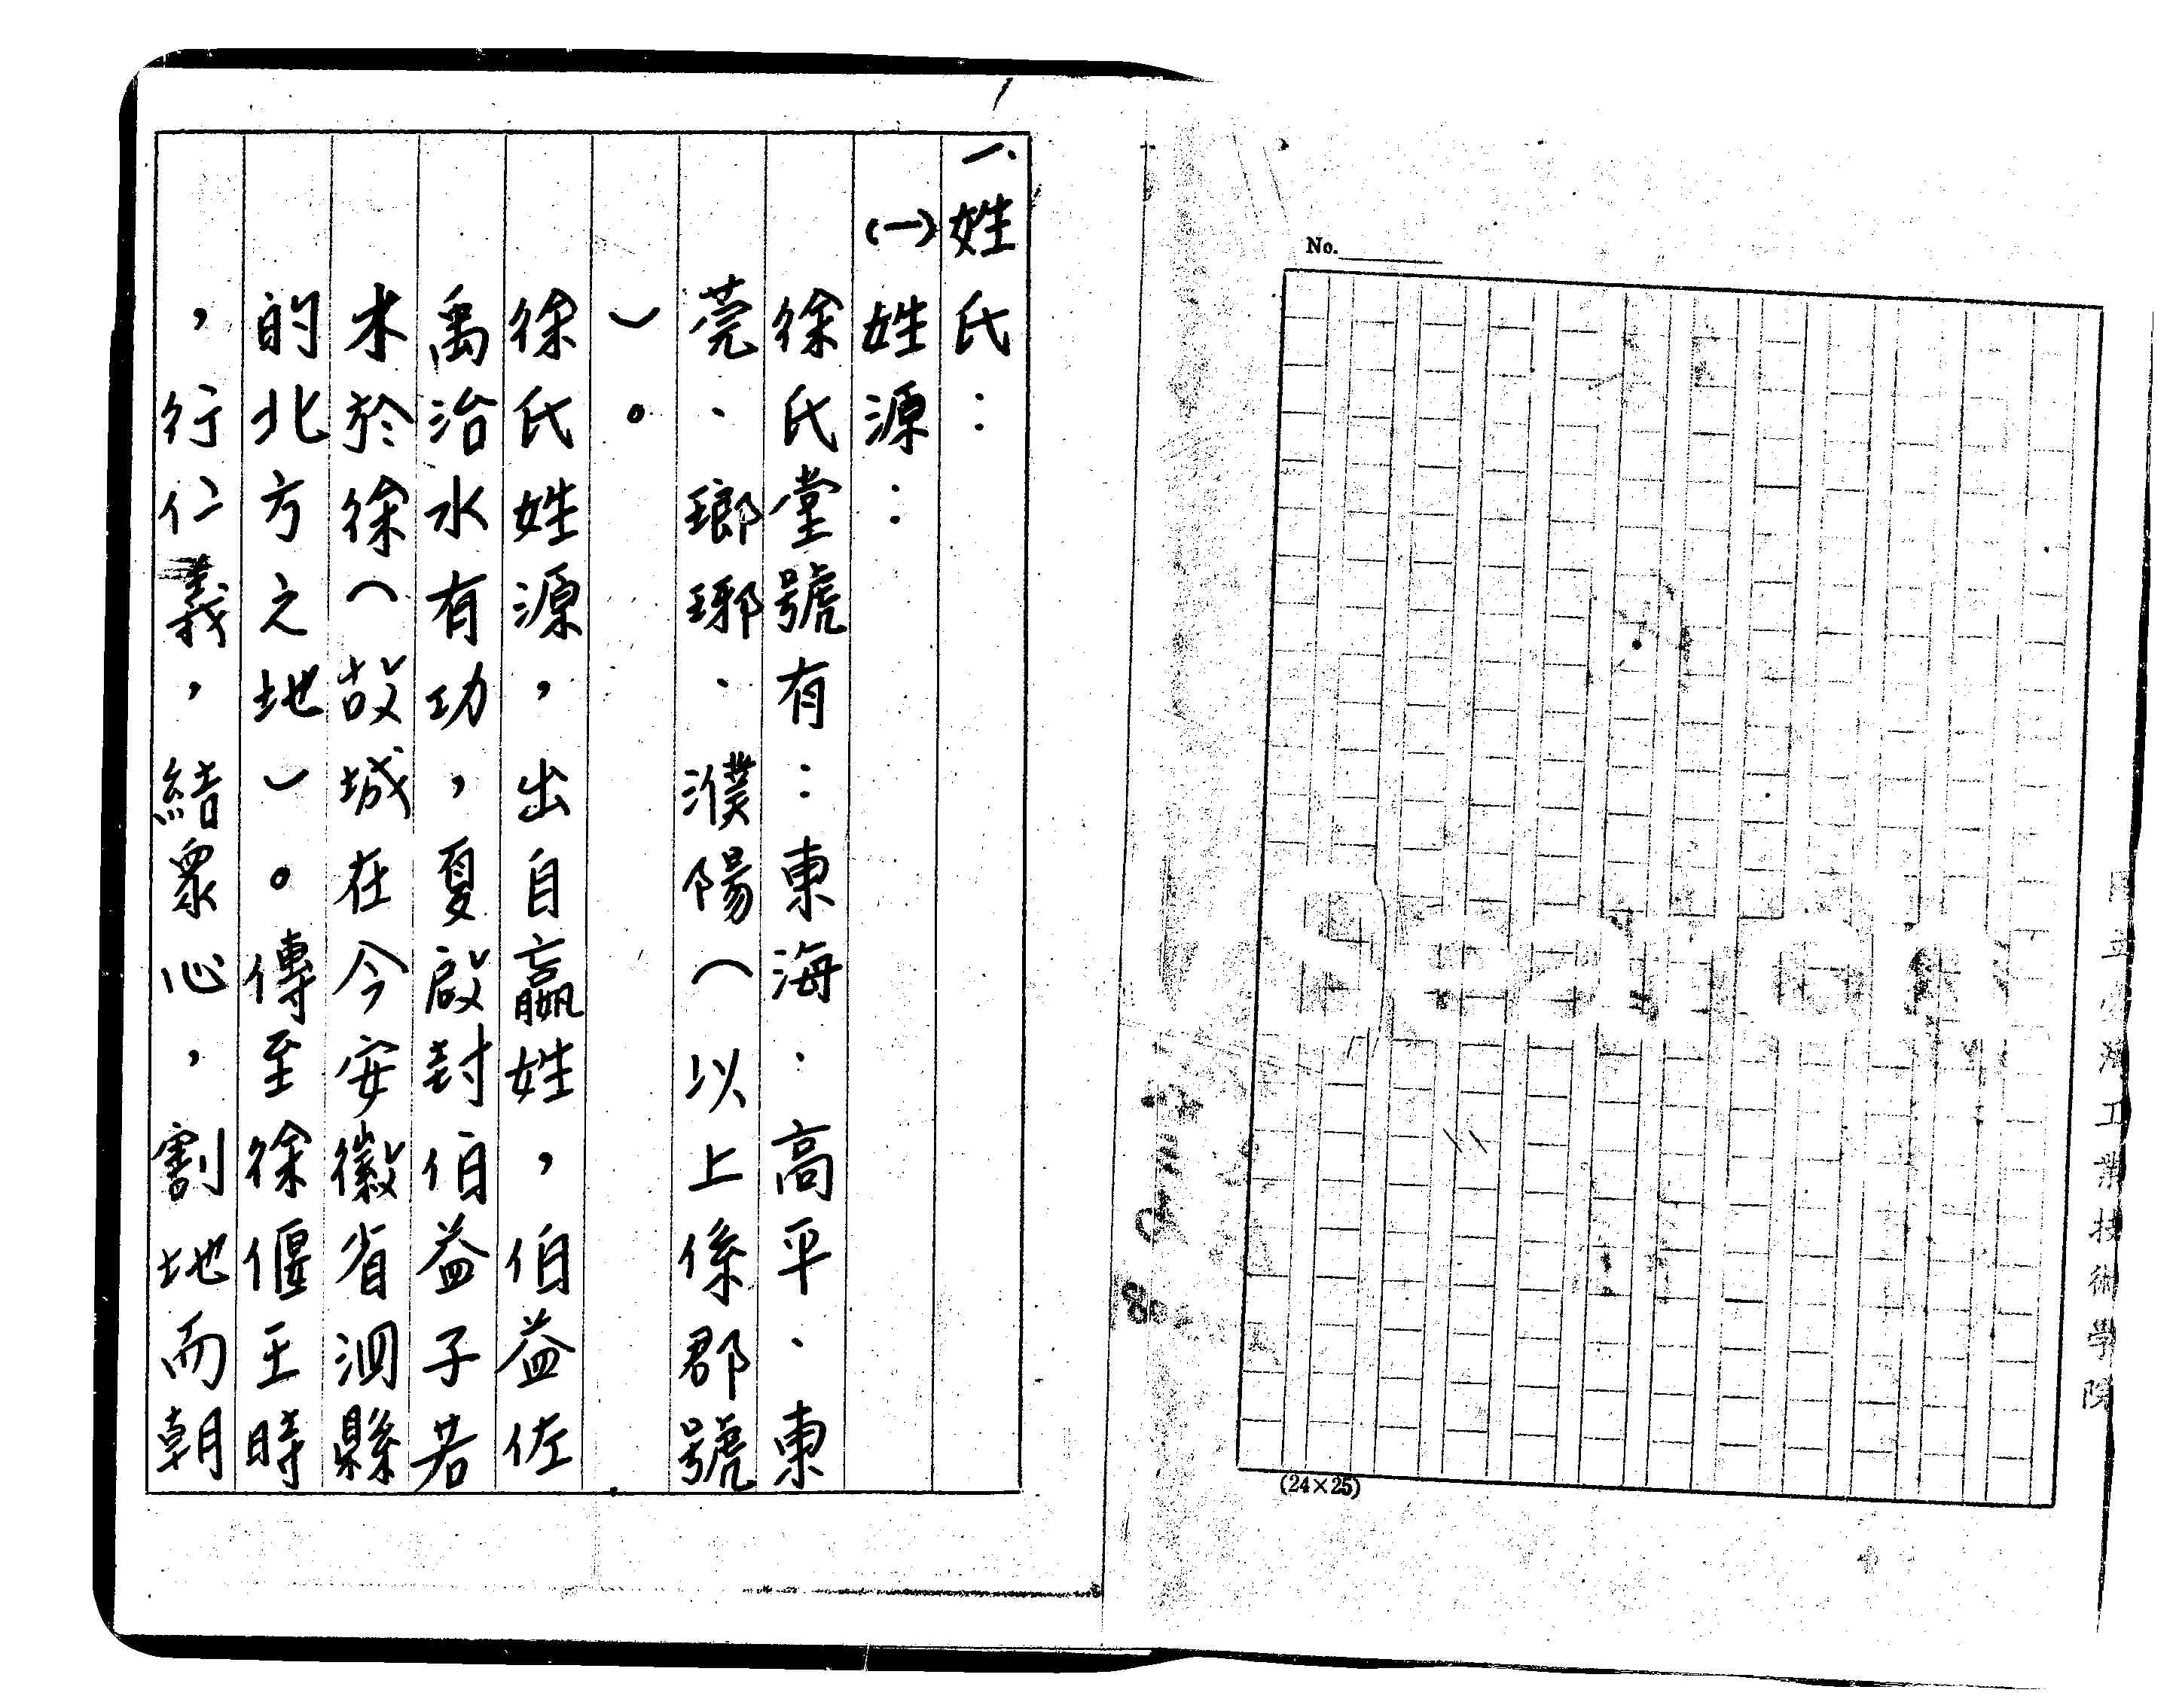 No.
國立台灣工業技術學院
(24×25)
一、姓氏：
(一)姓源：
徐氏堂號有：東海、高平、東
莞、瑯琊、濮陽（以上係郡號
）。
徐氏姓源，出自嬴姓，伯益佐
禹治水有功，夏啟封伯益子若
木於徐（故城在今安徽省泗縣
的北方之地）。傳至徐偃王時
，行仁義，結眾心，割地而朝